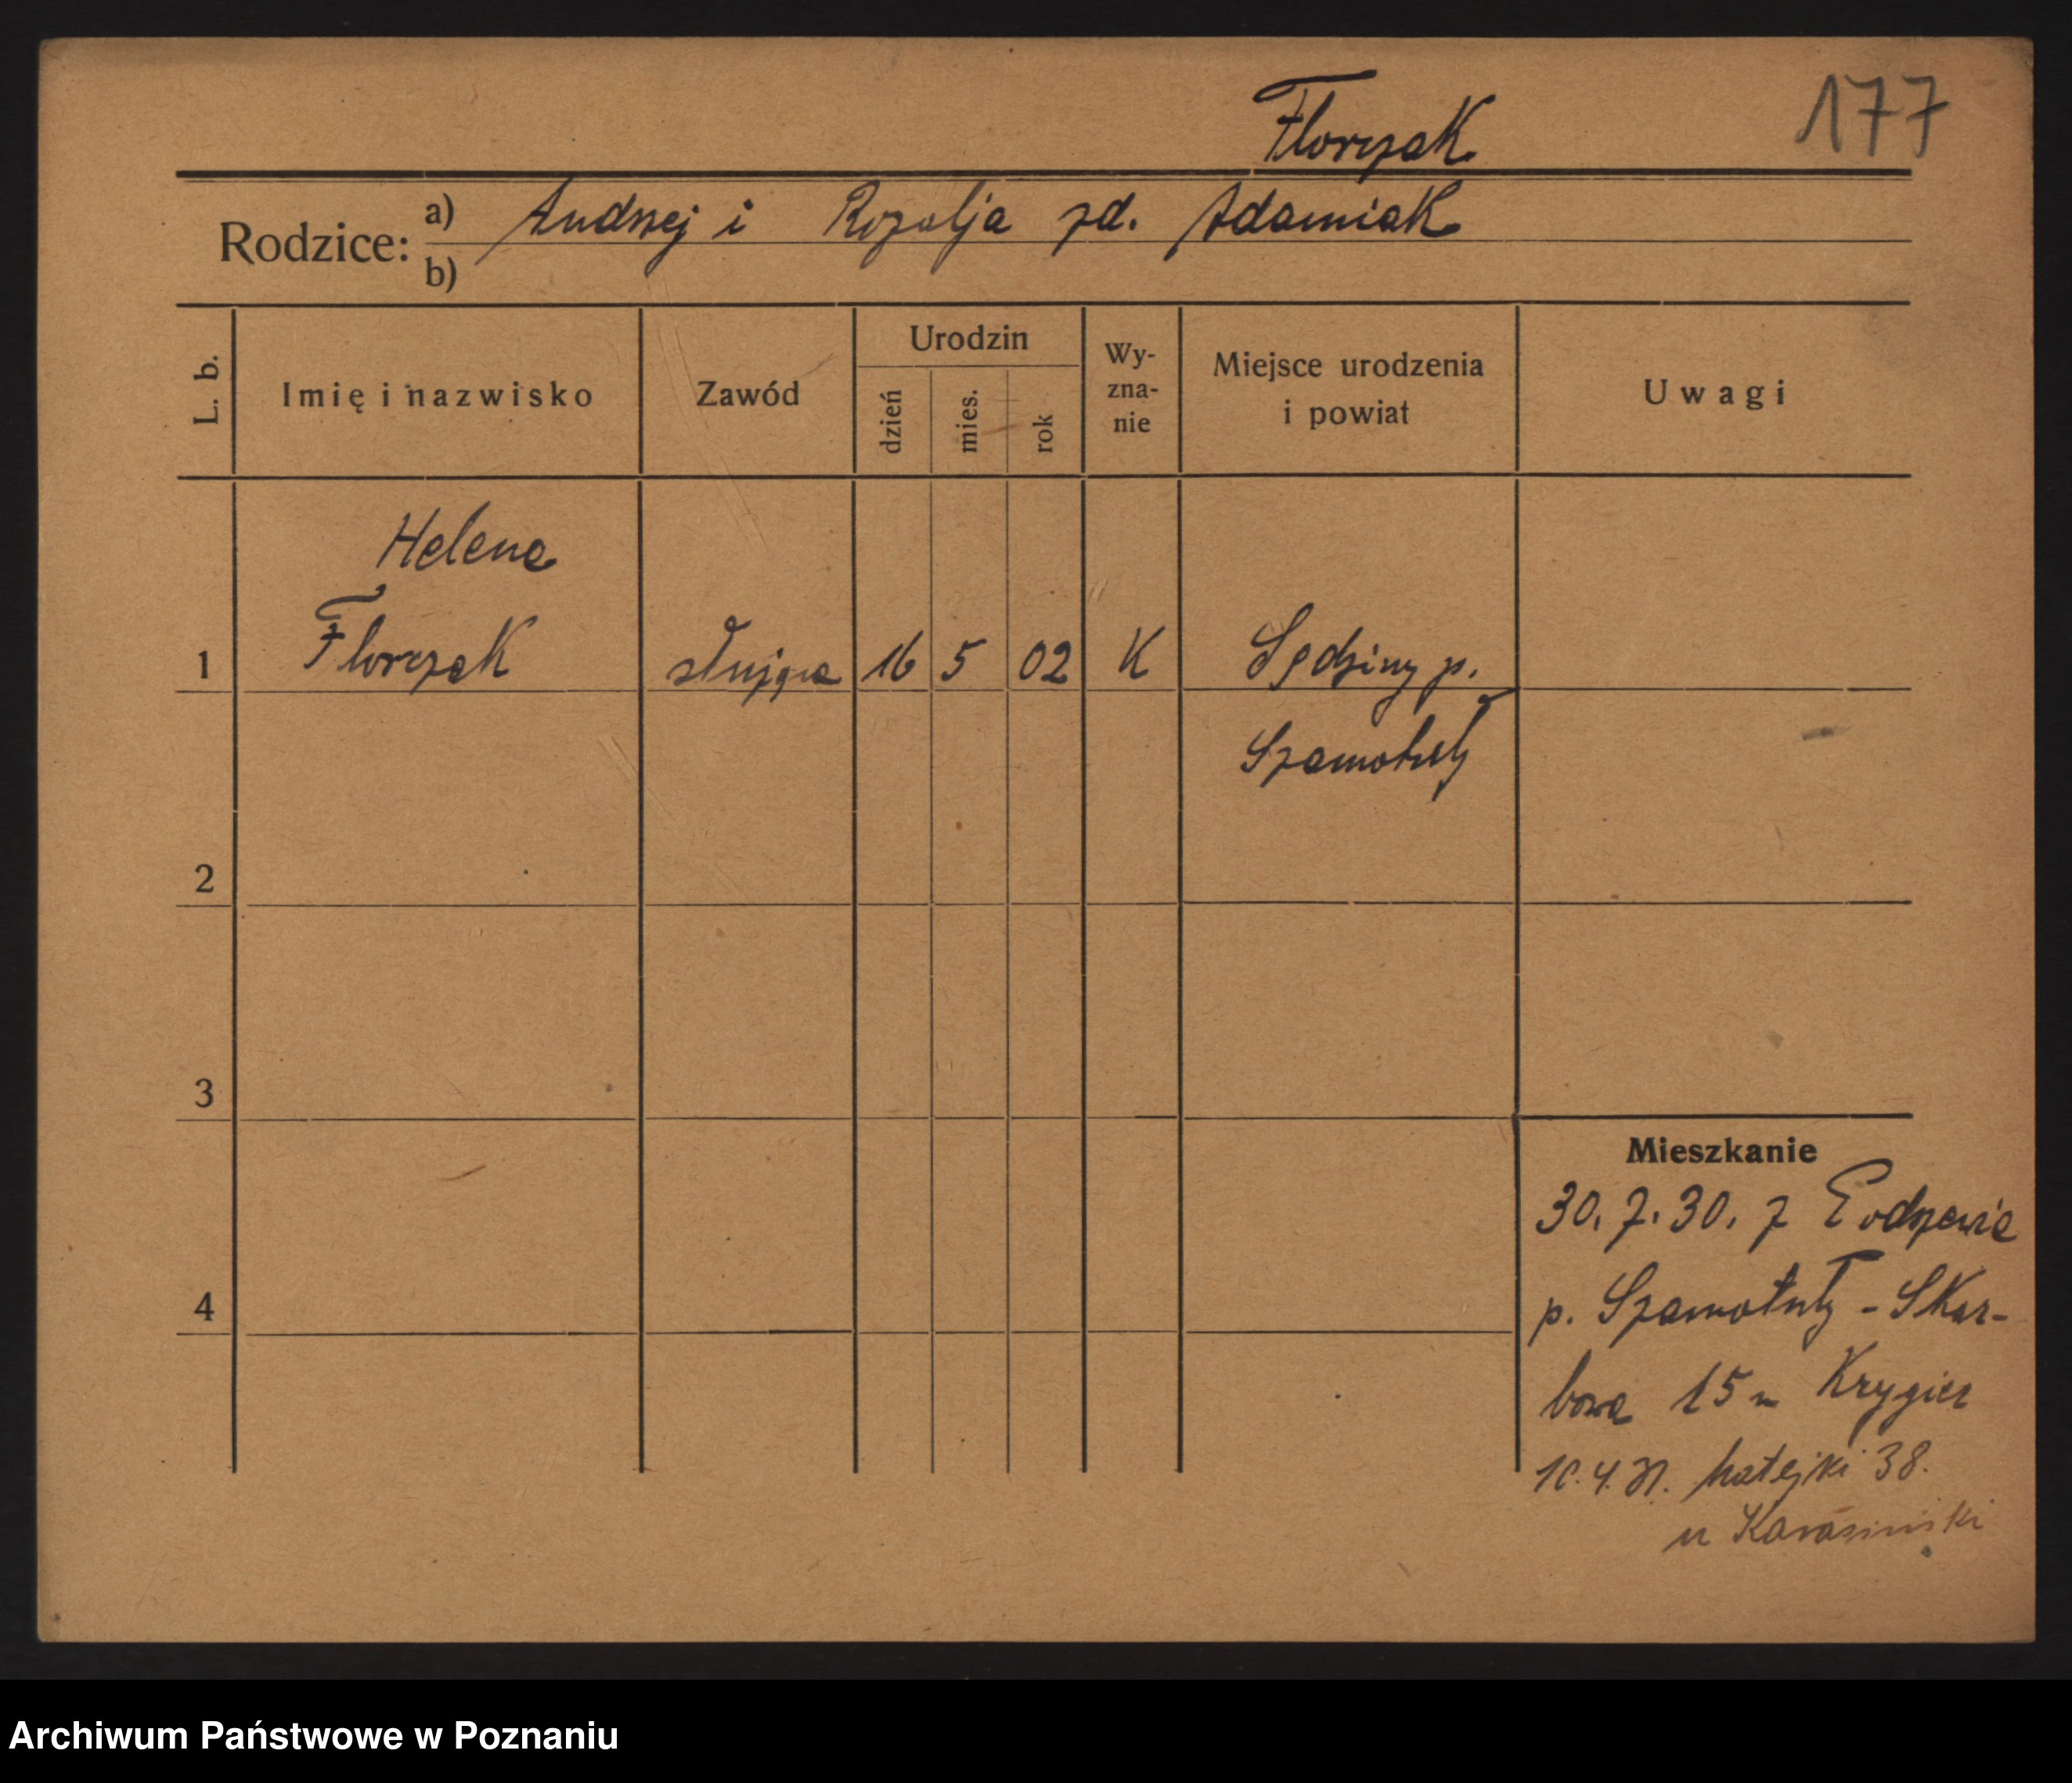 Florczak
177
Rodzice: a) Andrzej i Rozalja zd. Adamiak
b)
L. b.
Imię i nazwisko
Zawód
Urodzin
dzień
mies.
rok
Wy-
zna-
nie
Miejsce urodzenia
i powiat
Uwagi
Helena
1 Florczak służąca 16 5 02 K Sędziny p.
Szamotuły
2
3
4
Mieszkanie
30. 7. 30. z
p. Szamotuły - Skar-
bowa 15 u Krygier
4. 31. Matejki 38.
u Karasiński
Archiwum Państwowe w Poznaniu